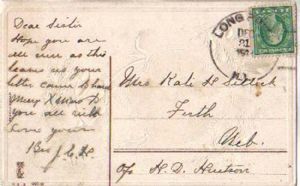 Dear Sister
Hope you are
all well as this
leaves us your
letter came to hand
Merry Xmas to
you all with
love yours
Bro J. C. H.
LONG
DE
21
Mrs Kate H
Firth
Neb.
c/o H. D. Hutson